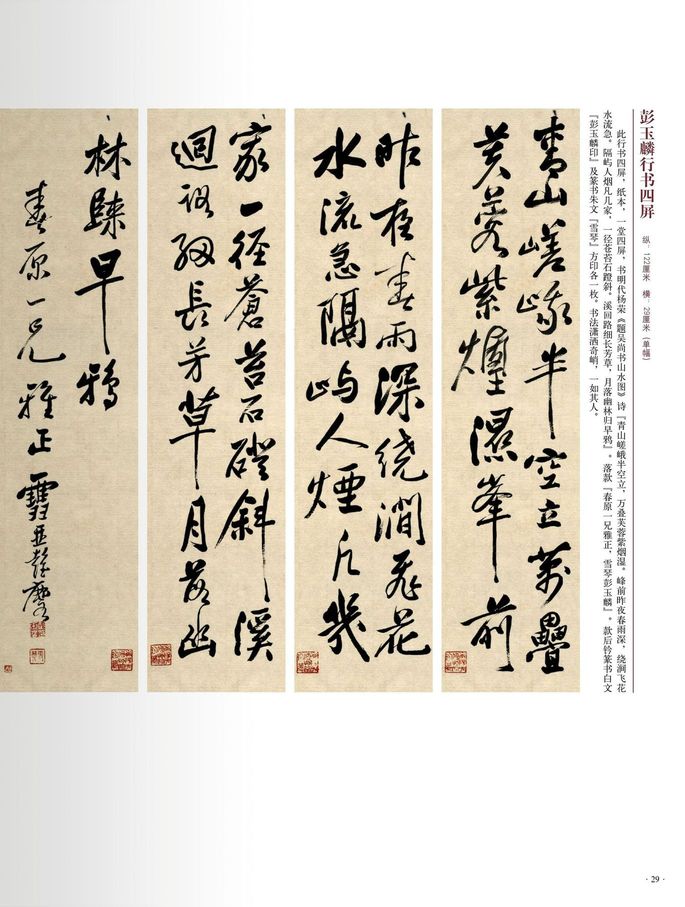 彭玉麟行书四屏
纵：122厘米 横：29厘米（单幅）
此行书四屏，纸本，一堂四屏，书明代杨荣《题吴尚书山水图》诗『青山嵯峨半空立，万叠芙蓉紫烟湿。峰前昨夜春雨深，绕涧飞花
水流急。隔屿人烟凡几家，一径苍苔石蹬斜。溪回路细长芳草，月落幽林归早鸦』。落款『春原一兄雅正，雪琴彭玉麟』。款后钤篆书白文
『彭玉麟印』及篆书朱文『雪琴』方印各一枚。书法潇洒奇峭，一如其人。
青山嵯峨半空立万疊
芙蓉紫煙濕峯前
昨夜春雨深绕澗飛花
水流急隔屿人煙凡幾
家一径蒼苔石磴斜溪
迴路細長芳草月落幽
林歸早鴉
春原一兄雅正雪琴彭玉麐
· 29 ·